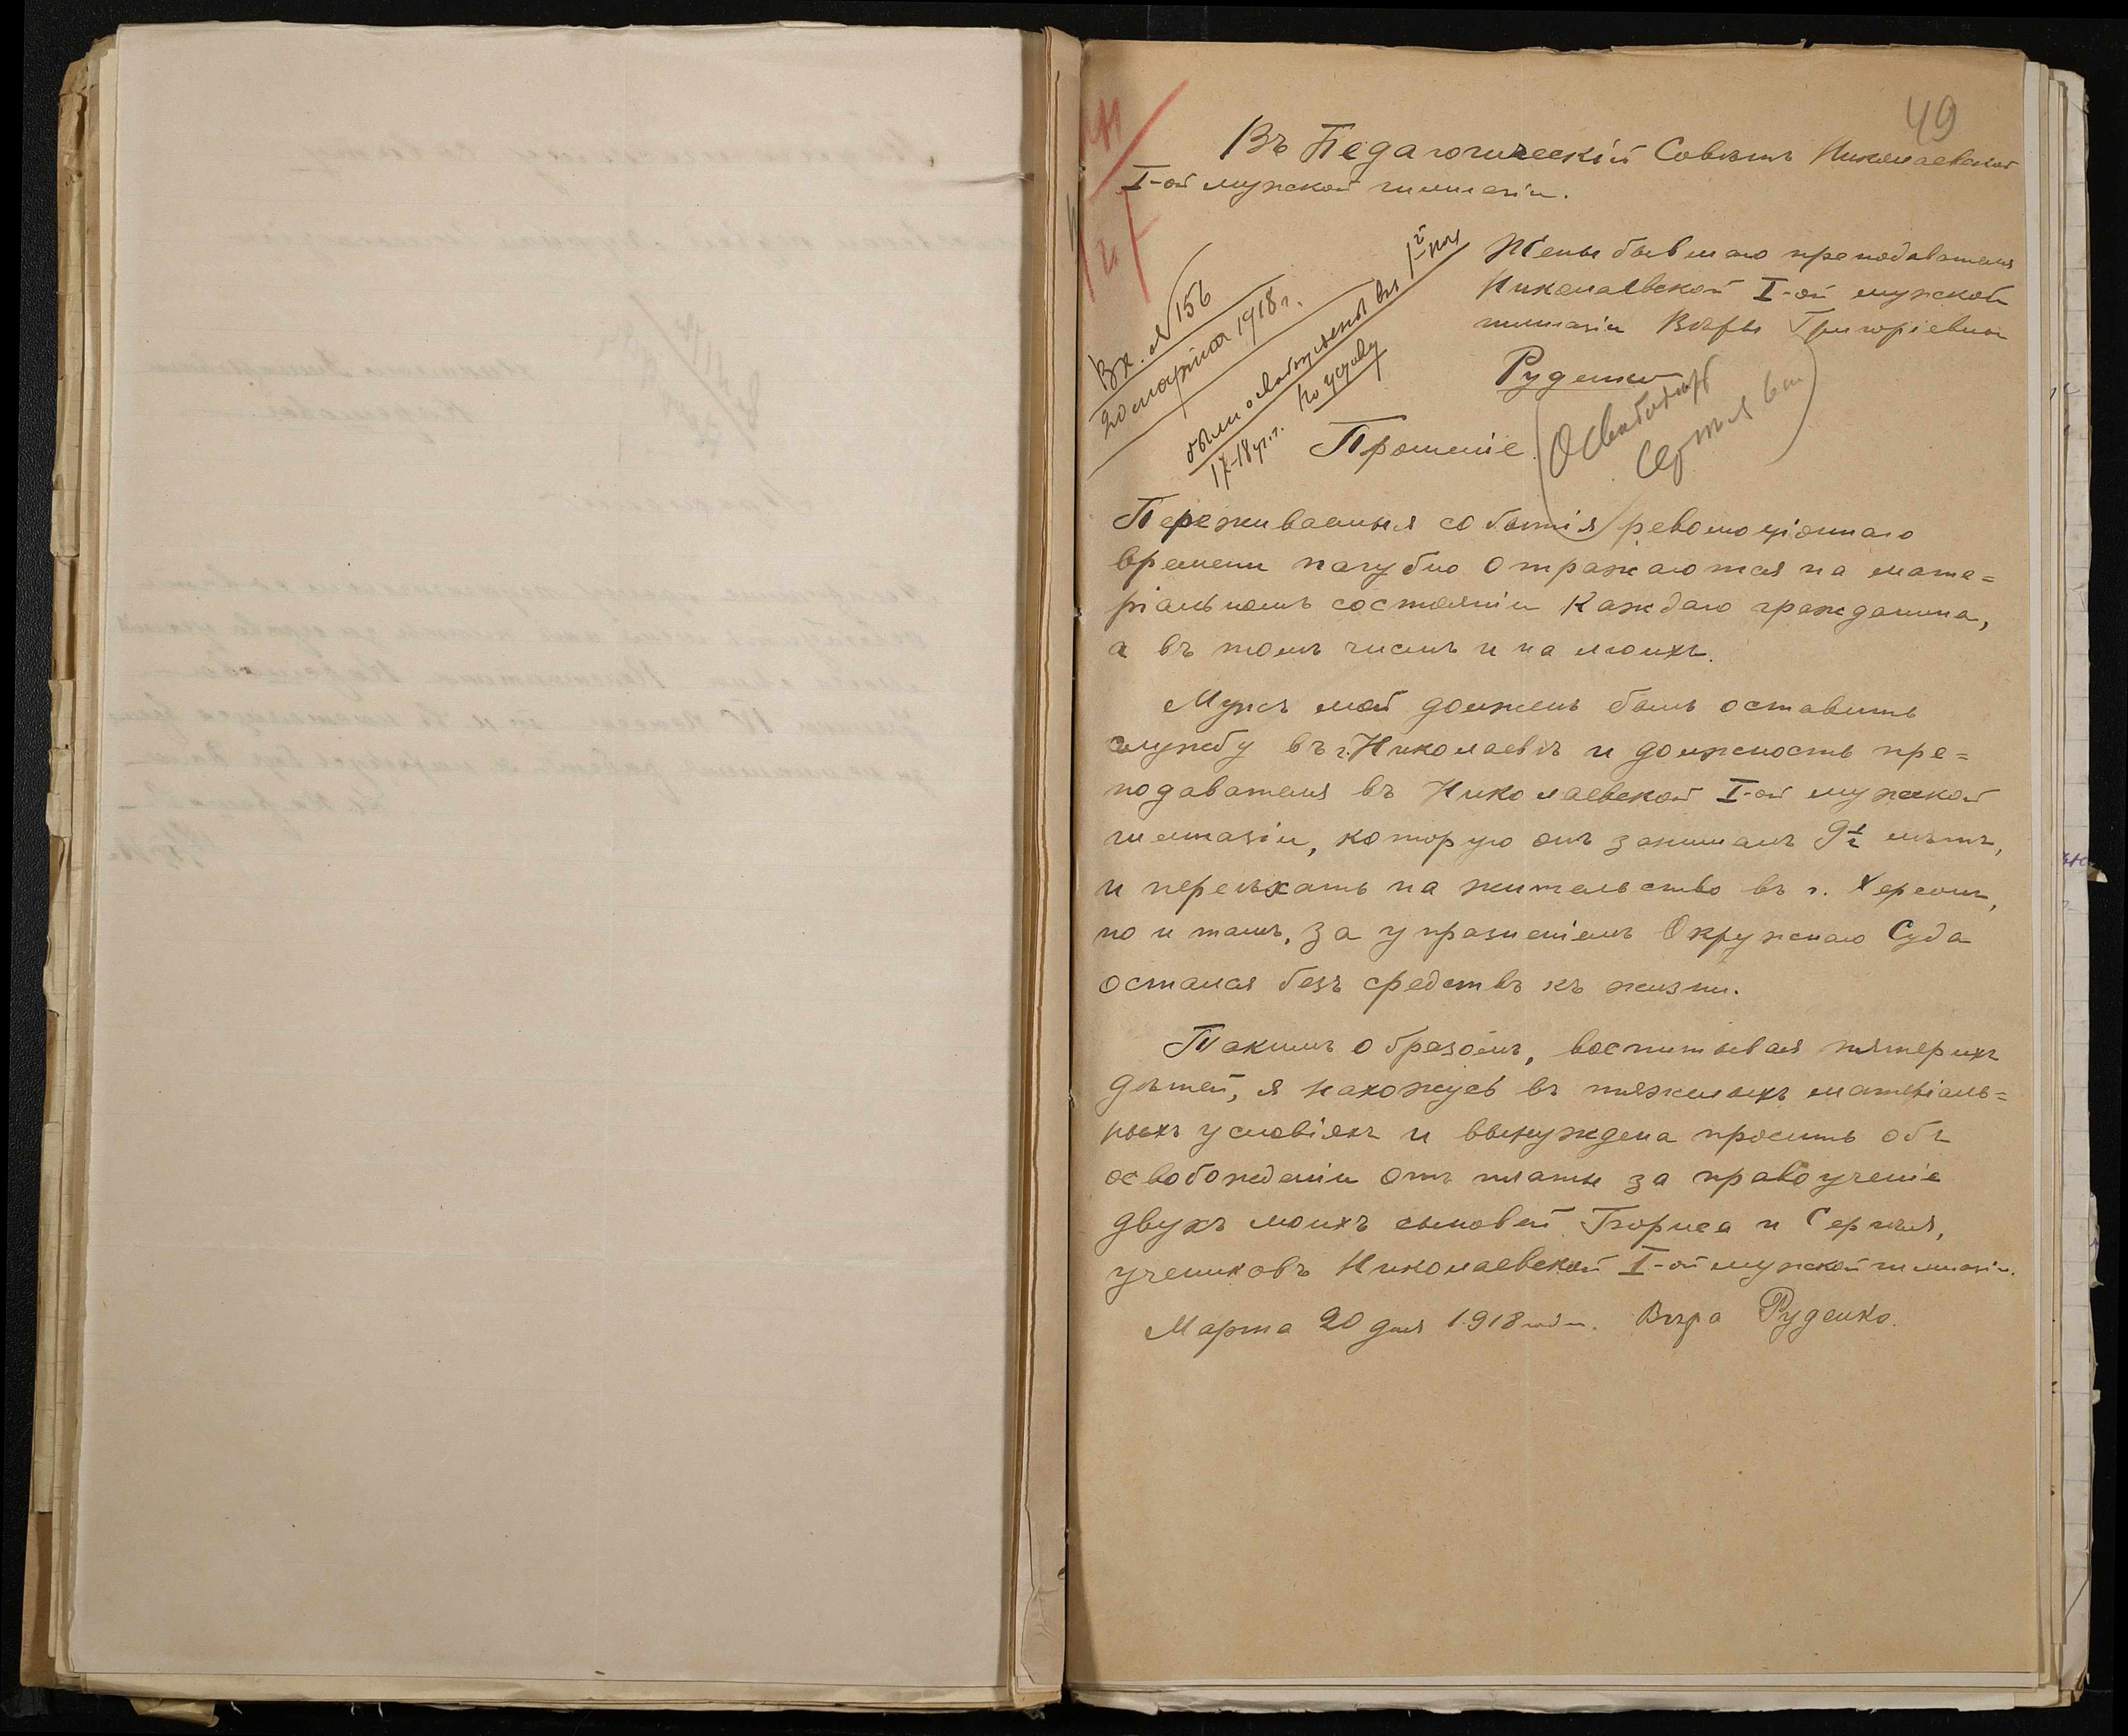 49
Въ Педагогическій Совѣтъ Николаевской
I-ой мужской гимназіи.
Жены бывшаго преподавателя
Николаевской I-ой мужской
гимназіи Вѣры Григоріевны
Руденко
Вх. № 156
20 марта 1918 г.
были освобождены въ 1-й пол
17-18 уч. г. по уставу
Освободить
Сергѣя
Прошеніе
Переживаемыя событія революціоннаго
времени пагубно отражаются на мате=
ріальномъ состояніи каждаго гражданина,
а въ томъ числѣ и на моихъ.
Мужъ мой долженъ былъ оставить
службу въ г. Николаевѣ и должность пре=
подавателя въ Николаевской I-ой мужской
гимназіи, которую онъ занималъ 9½ лѣтъ,
и переѣхать на жительство въ г. Херсонъ,
но и тамъ, за упраздненіемъ Окружнаго Суда
остался безъ средствъ къ жизни.
Такимъ образомъ, воспитывая пятерыхъ
дѣтей, я нахожусь въ тяжелыхъ матеріаль=
ныхъ условіяхъ и вынуждена просить объ
освобожденіи отъ платы за правоученіе
двухъ моихъ сыновей Бориса и Сергѣя,
учениковъ Николаевской I-ой мужской гимназіи.
Марта 20 дня 1918 года. Вѣра Руденко.